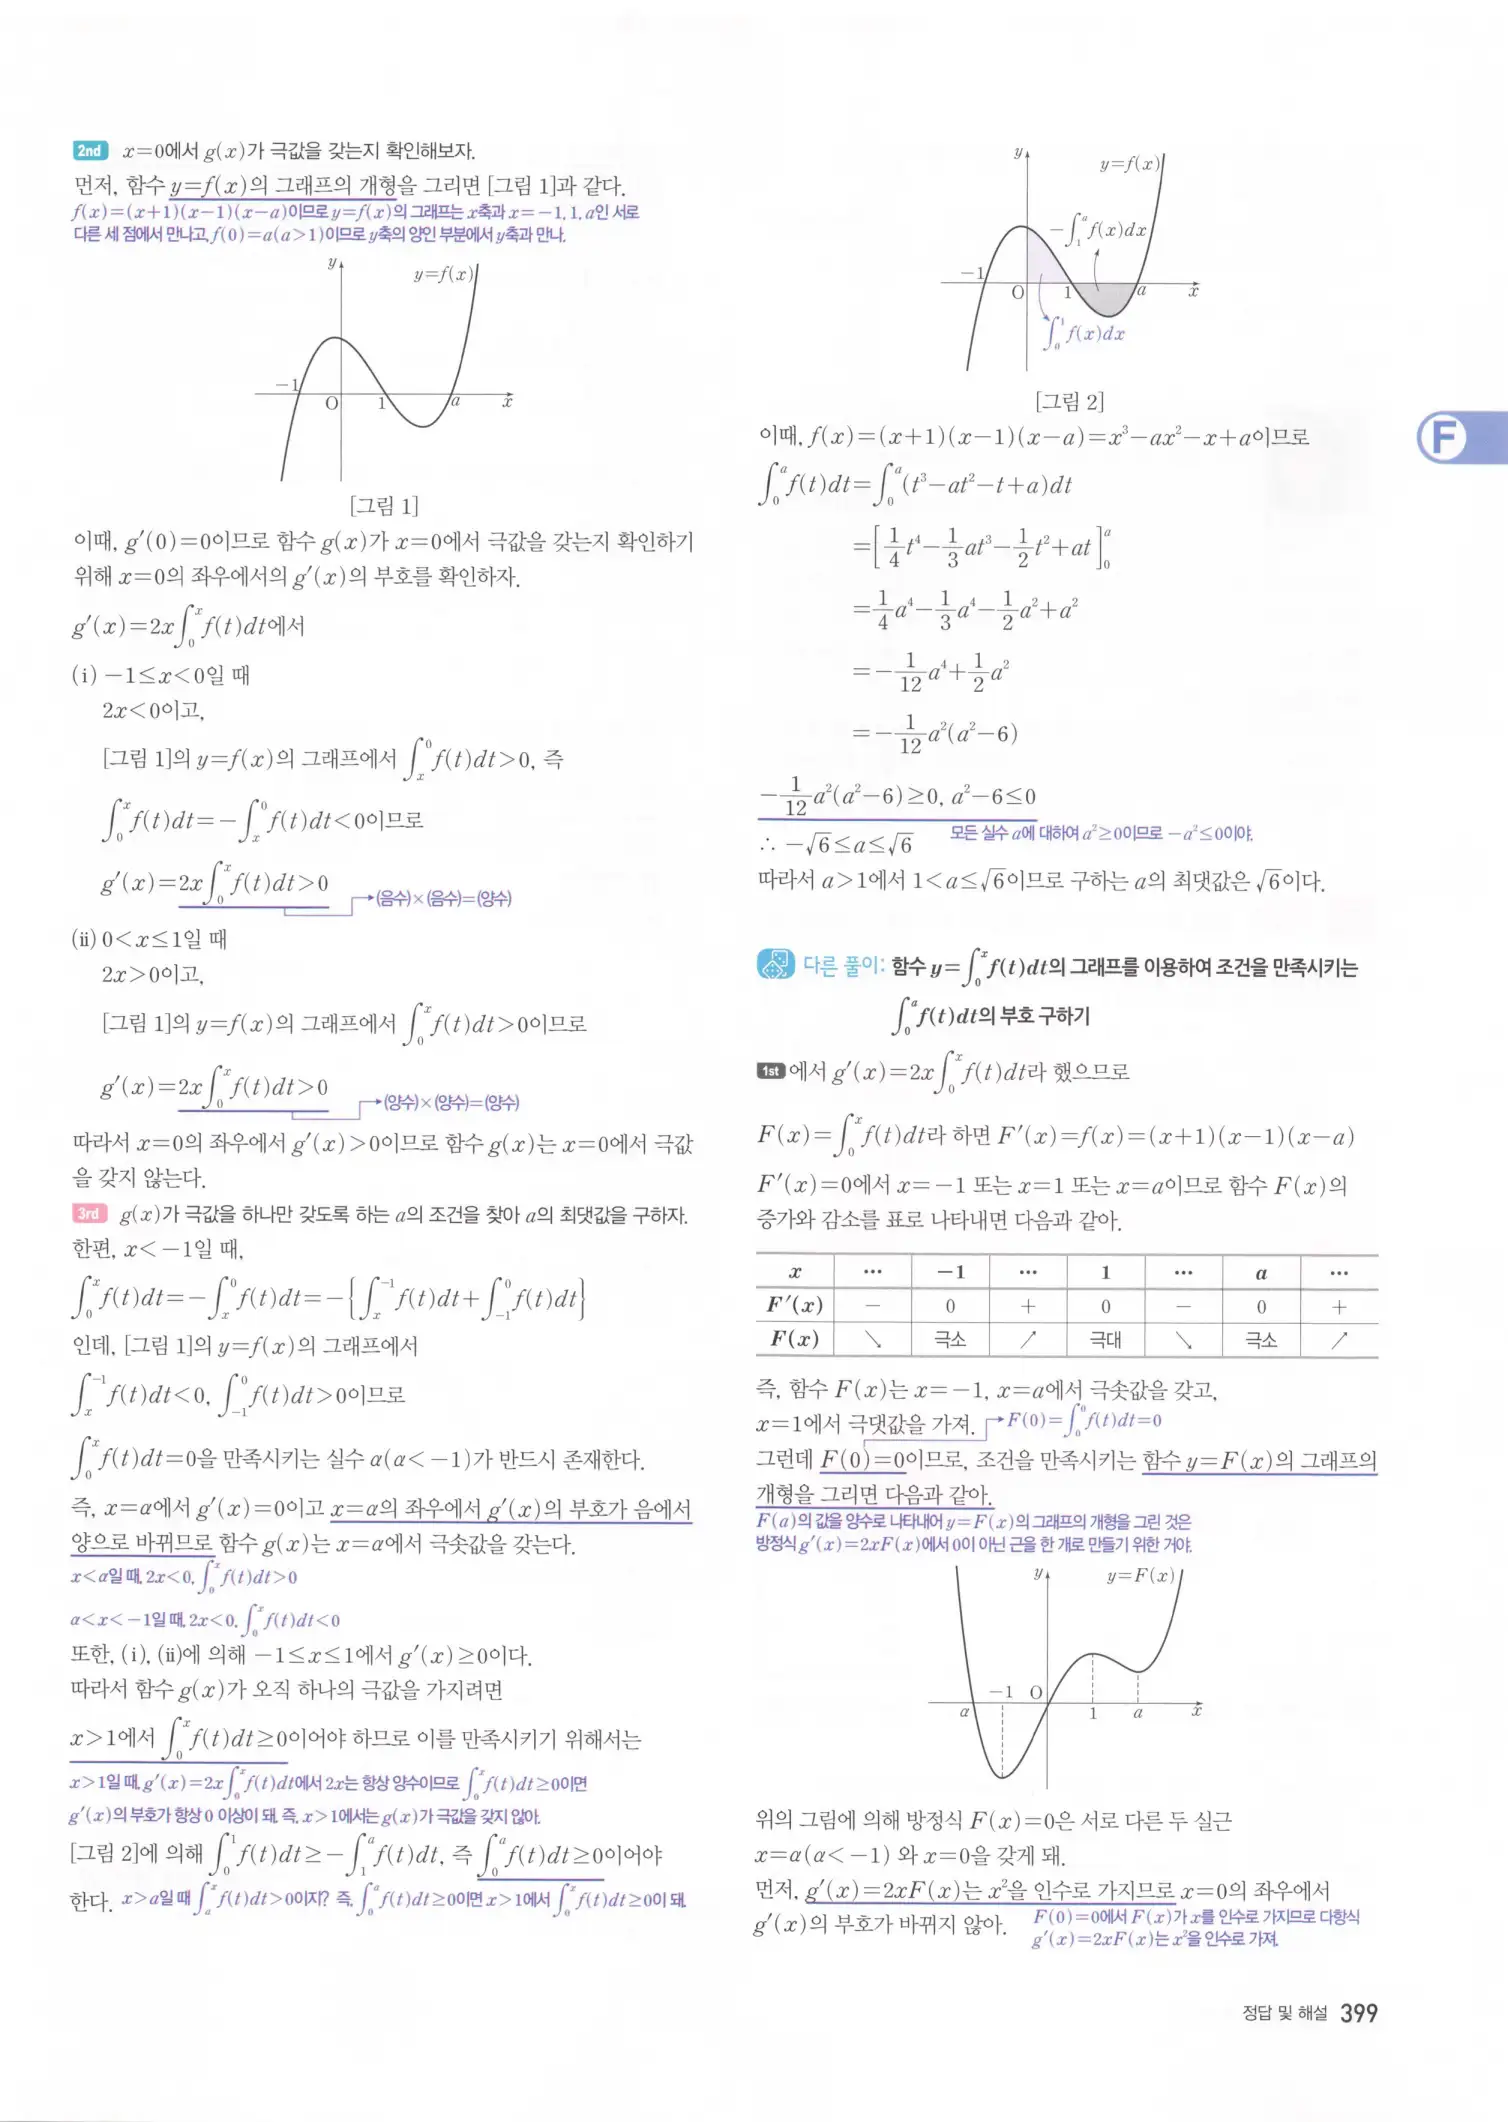 2nd x=0에서 g(x)가 극값을 갖는지 확인해보자.
먼저, 함수 y=f(x)의 그래프의 개형을 그리면 [그림 1]과 같다.
f(x)=(x+1)(x−1)(x−a)이므로 y=f(x)의 그래프는 x축과 x=−1, 1, a인 서로
다른 세 점에서 만나고, f(0)=a(a>1)이므로 y축의 양인 부분에서 y축과 만나.
y
y=f(x)
−1
O
1
a
x
[그림 1]
이때, g′(0)=0이므로 함수 g(x)가 x=0에서 극값을 갖는지 확인하기
위해 x=0의 좌우에서의 g′(x)의 부호를 확인하자.
g′(x)=2x∫₀ˣ f(t)dt에서
(ⅰ) −1≤x<0일 때
2x<0이고,
[그림 1]의 y=f(x)의 그래프에서 ∫ₓ⁰ f(t)dt>0, 즉
∫₀ˣ f(t)dt=−∫ₓ⁰ f(t)dt<0이므로
g′(x)=2x∫₀ˣ f(t)dt>0
→(음수)×(음수)=(양수)
(ⅱ) 0<x≤1일 때
2x>0이고,
[그림 1]의 y=f(x)의 그래프에서 ∫₀ˣ f(t)dt>0이므로
g′(x)=2x∫₀ˣ f(t)dt>0
→(양수)×(양수)=(양수)
따라서 x=0의 좌우에서 g′(x)>0이므로 함수 g(x)는 x=0에서 극값
을 갖지 않는다.
3rd g(x)가 극값을 하나만 갖도록 하는 a의 조건을 찾아 a의 최댓값을 구하자.
한편, x<−1일 때,
∫₀ˣ f(t)dt=−∫ₓ⁰ f(t)dt=−{∫ₓ⁻¹ f(t)dt+∫₋₁⁰ f(t)dt}
인데, [그림 1]의 y=f(x)의 그래프에서
∫ₓ⁻¹ f(t)dt<0, ∫₋₁⁰ f(t)dt>0이므로
∫₀ˣ f(t)dt=0을 만족시키는 실수 α(α<−1)가 반드시 존재한다.
즉, x=α에서 g′(x)=0이고 x=α의 좌우에서 g′(x)의 부호가 음에서
양으로 바뀌므로 함수 g(x)는 x=α에서 극솟값을 갖는다.
x<α일 때, 2x<0, ∫₀ˣ f(t)dt>0
α<x<−1일 때, 2x<0, ∫₀ˣ f(t)dt<0
또한, (ⅰ), (ⅱ)에 의해 −1≤x≤1에서 g′(x)≥0이다.
따라서 함수 g(x)가 오직 하나의 극값을 가지려면
x>1에서 ∫₀ˣ f(t)dt≥0이어야 하므로 이를 만족시키기 위해서는
x>1일 때, g′(x)=2x∫₀ˣ f(t)dt에서 2x는 항상 양수이므로 ∫₀ˣ f(t)dt≥0이면
g′(x)의 부호가 항상 0 이상이 돼. 즉, x>1에서는 g(x)가 극값을 갖지 않아.
[그림 2]에 의해 ∫₀¹ f(t)dt≥−∫₁ᵃ f(t)dt, 즉 ∫₀ᵃ f(t)dt≥0이어야
한다. x>a일 때 ∫ₐˣ f(t)dt>0이지? 즉, ∫₀ᵃ f(t)dt≥0이면 x>1에서 ∫₀ˣ f(t)dt≥0이 돼.
y
y=f(x)
−∫₁ᵃ f(x)dx
−1
O
1
a
x
∫₀¹ f(x)dx
[그림 2]
이때, f(x)=(x+1)(x−1)(x−a)=x³−ax²−x+a이므로
∫₀ᵃ f(t)dt=∫₀ᵃ (t³−at²−t+a)dt
=[1/4 t⁴−1/3 at³−1/2 t²+at]₀ᵃ
=1/4 a⁴−1/3 a⁴−1/2 a²+a²
=−1/12 a⁴+1/2 a²
=−1/12 a²(a²−6)
−1/12 a²(a²−6)≥0, a²−6≤0
∴ −√6≤a≤√6 모든 실수 a에 대하여 a²≥0이므로 −a²≤0이야.
따라서 a>1에서 1<a≤√6이므로 구하는 a의 최댓값은 √6이다.
F
다른 풀이: 함수 y=∫₀ˣ f(t)dt의 그래프를 이용하여 조건을 만족시키는
∫₀ᵃ f(t)dt의 부호 구하기
1st에서 g′(x)=2x∫₀ˣ f(t)dt라 했으므로
F(x)=∫₀ˣ f(t)dt라 하면 F′(x)=f(x)=(x+1)(x−1)(x−a)
F′(x)=0에서 x=−1 또는 x=1 또는 x=a이므로 함수 F(x)의
증가와 감소를 표로 나타내면 다음과 같아.
x ⋯ −1 ⋯ 1 ⋯ a ⋯
F′(x) − 0 + 0 − 0 +
F(x) ↘ 극소 ↗ 극대 ↘ 극소 ↗
즉, 함수 F(x)는 x=−1, x=a에서 극솟값을 갖고,
x=1에서 극댓값을 가져. →F(0)=∫₀⁰ f(t)dt=0
그런데 F(0)=0이므로, 조건을 만족시키는 함수 y=F(x)의 그래프의
개형을 그리면 다음과 같아.
F(a)의 값을 양수로 나타내어 y=F(x)의 그래프의 개형을 그린 것은
방정식 g′(x)=2xF(x)에서 0이 아닌 근을 한 개로 만들기 위한 거야.
y
y=F(x)
−1
O
α
1
a
x
위의 그림에 의해 방정식 F(x)=0은 서로 다른 두 실근
x=α(α<−1) 와 x=0을 갖게 돼.
먼저, g′(x)=2xF(x)는 x²을 인수로 가지므로 x=0의 좌우에서
g′(x)의 부호가 바뀌지 않아. F(0)=0에서 F(x)가 x를 인수로 가지므로 다항식
g′(x)=2xF(x)는 x²을 인수로 가져.
정답 및 해설 399